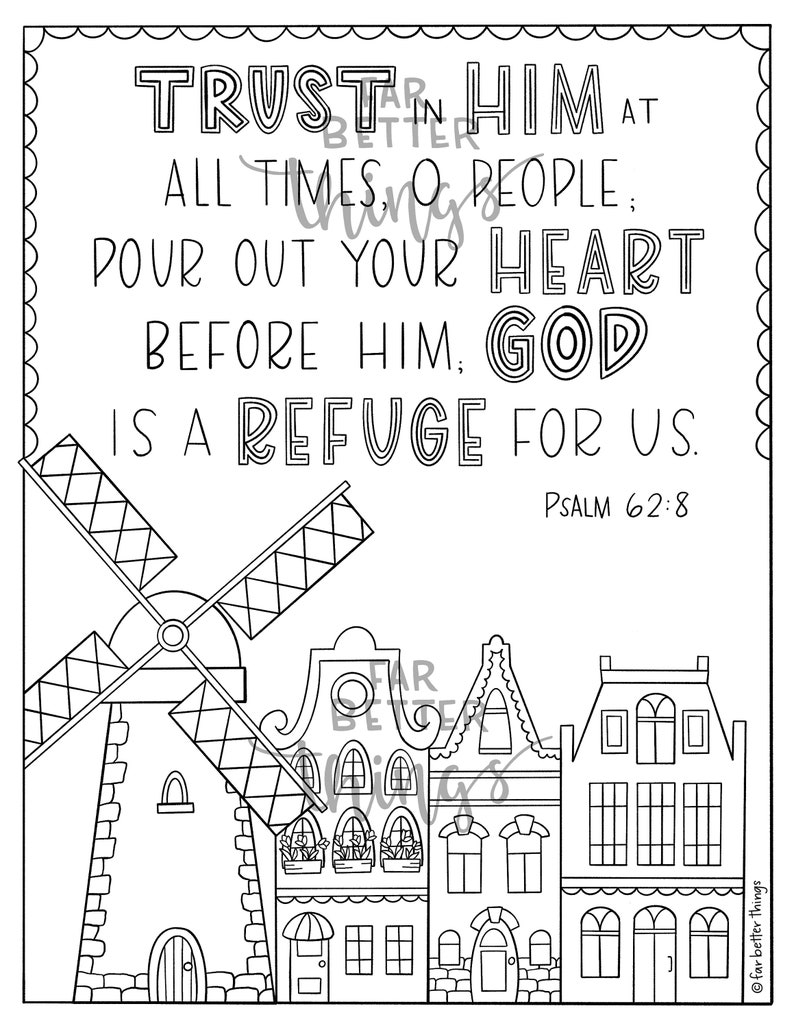 TRUST IN HIM AT
ALL TIMES, O PEOPLE;
POUR OUT YOUR HEART
BEFORE HIM; GOD
IS A REFUGE FOR US.
PSALM 62:8
FAR
BETTER
things
FAR
BETTER
things
© far better things